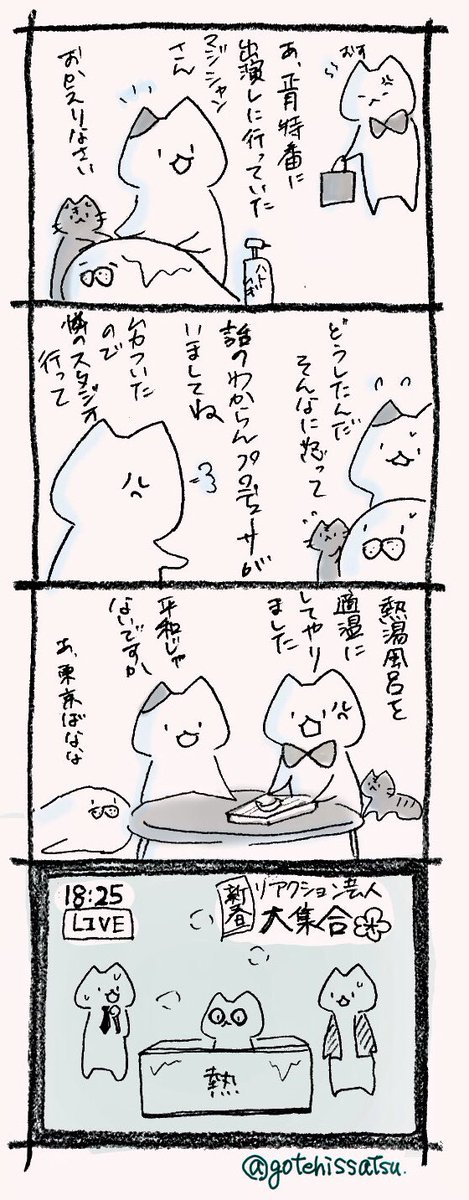 おす
あ、正月特番に
出演しに行っていた
マジシャン
さん
おかえりなさい
どうしたんだ
そんなに怒って
話のわからんプロデューサが
いましてね
ムカついた
ので
隣のスタジオ
行って
熱湯風呂を
適温に
してやり
ました
平和じゃ
ないですか
あ、東京ばなな
18:25
LIVE
新春
リアクション芸人
大集合
熱
@gotehissatsu.